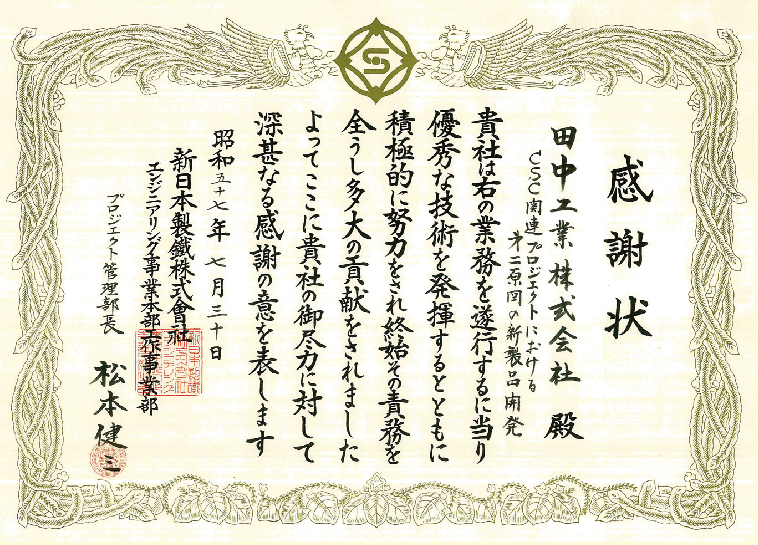 感謝状
田中工業株式会社 殿
CSC関連プロジェクトにおける
第二原図の新製品開発
貴社は右の業務を遂行するに当り
優秀な技術を発揮するとともに
積極的に努力をされ終始その責務を
全うし多大の貢献をされました
よってここに貴社の御尽力に対して
深甚なる感謝の意を表します
昭和五十七年七月三十日
新日本製鐵株式會社
エンジニアリング事業本部工作事業部
プロジェクト管理部長
松本健三